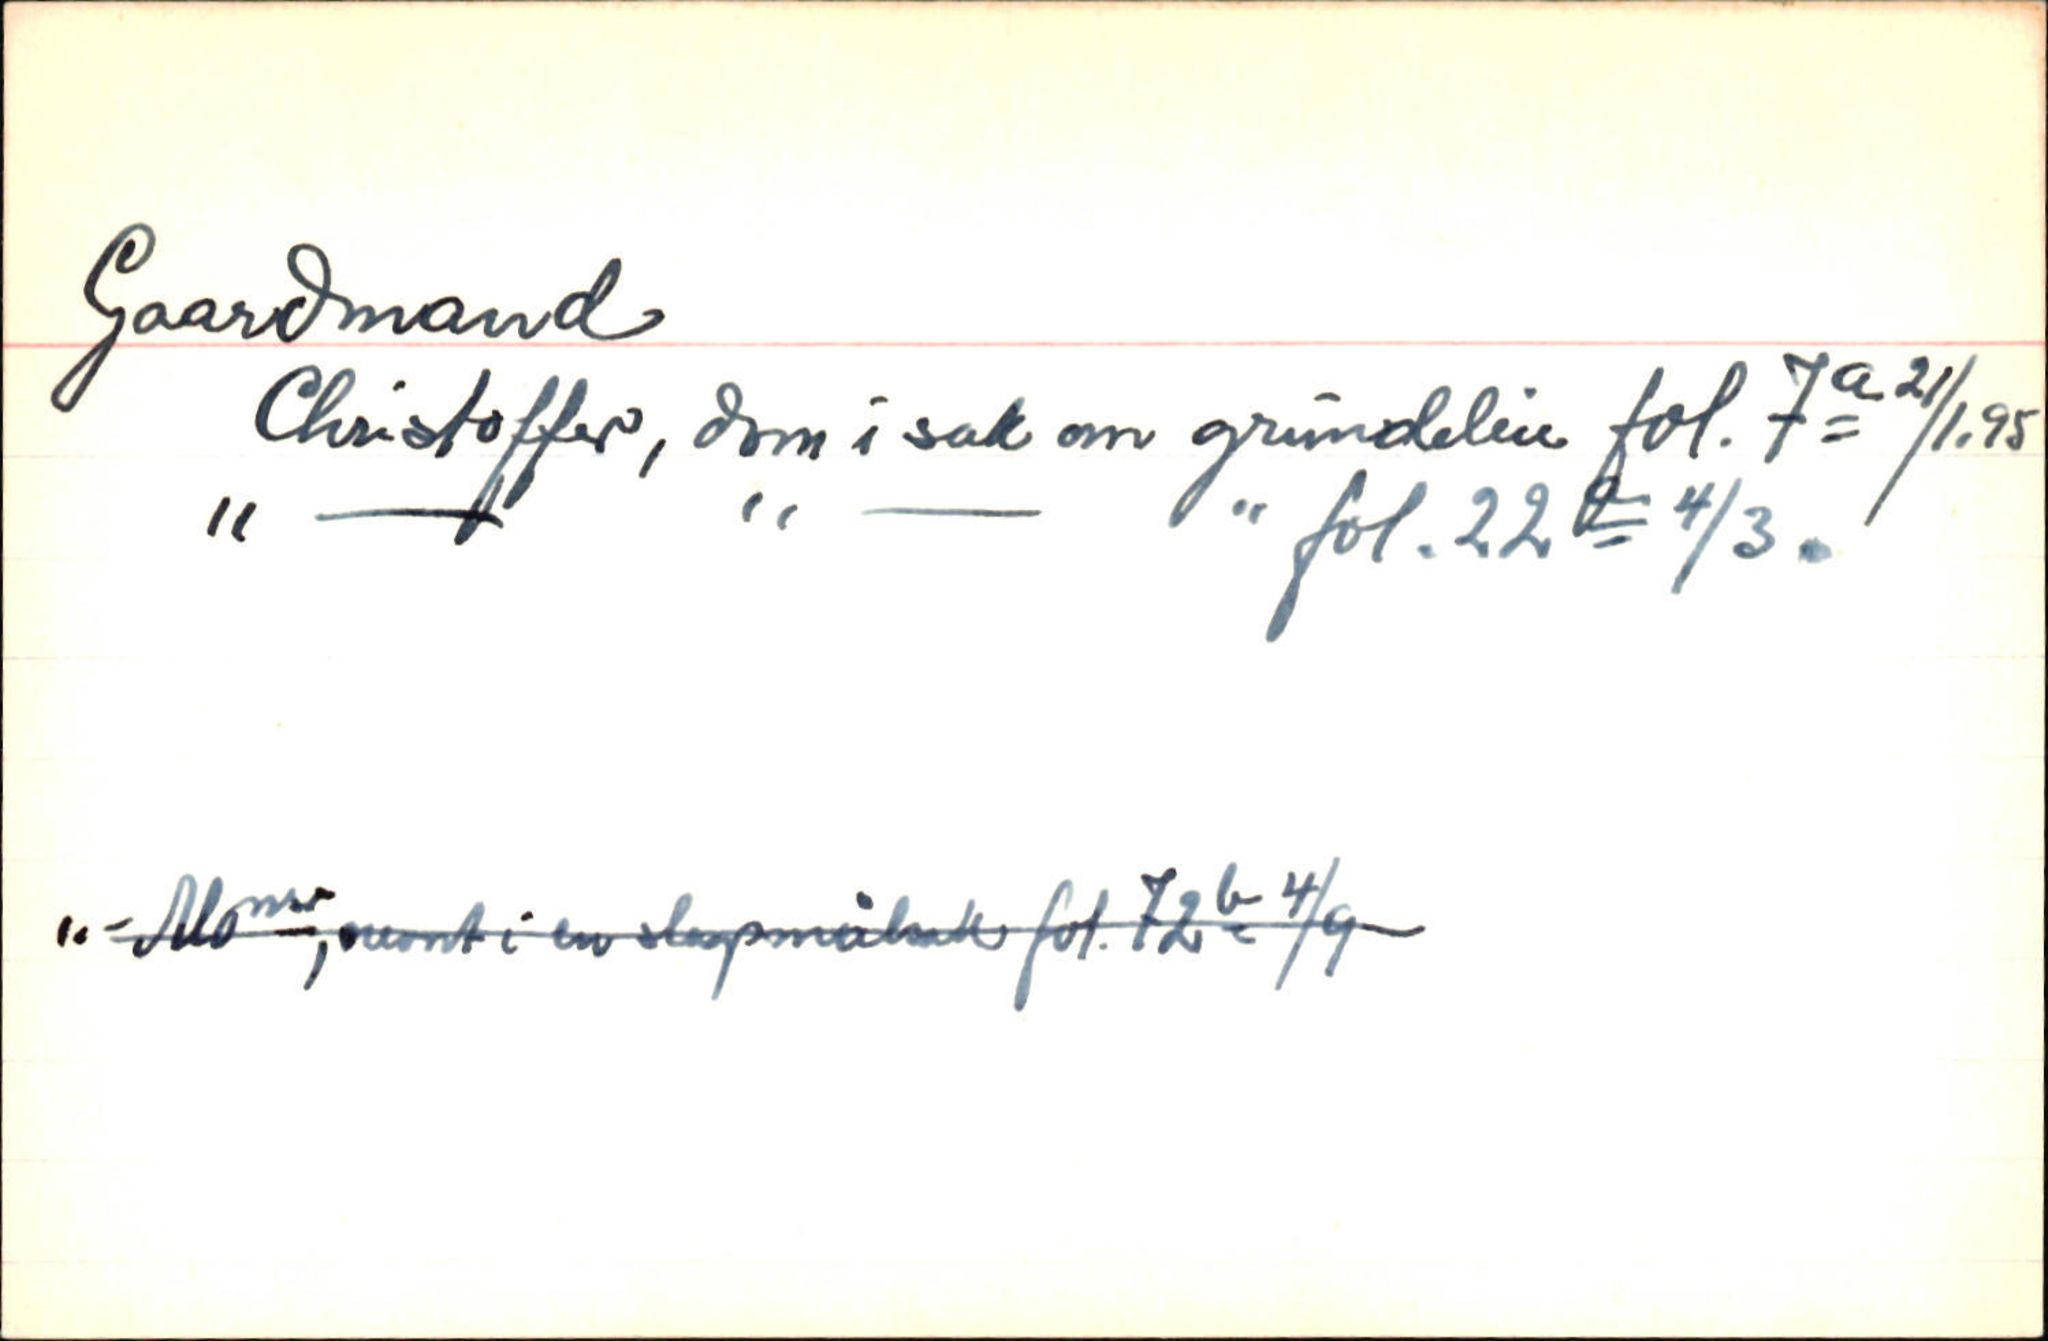 Gaardmand
Christoffer, dom i sak om grundleie fol. 7a 21/1.95
" — " — " fol. 22a 4/3.
"- Monsr, nevnt i en slagsmålsak fol. 72b 4/9